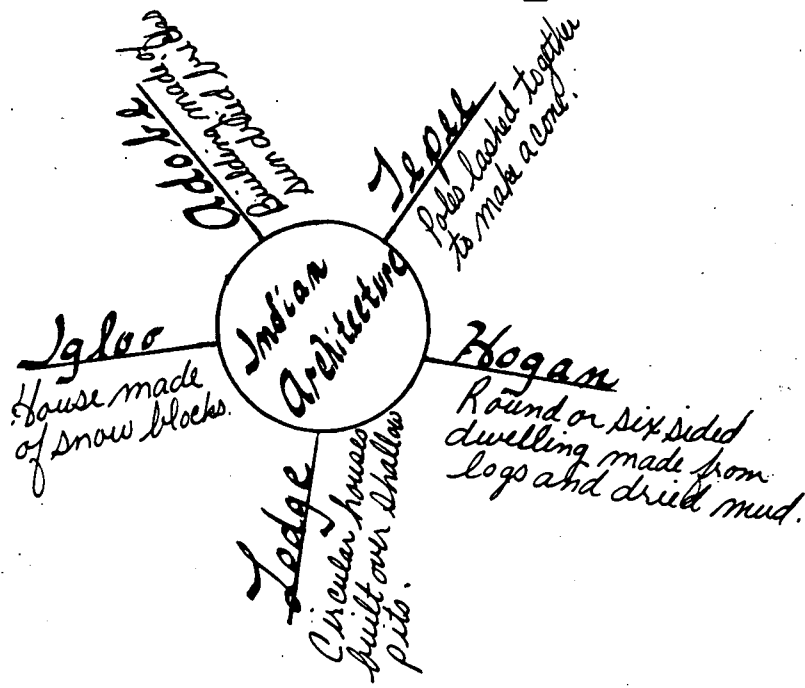 Indian
Architecture
Adobe
Building made of
sun dried bricks
Tepee
Poles lashed together
to make a cone.
Hogan
Round or six sided
dwelling made from
logs and dried mud.
Lodge
Circular houses
built over shallow
pits.
Igloo
House made
of snow blocks.